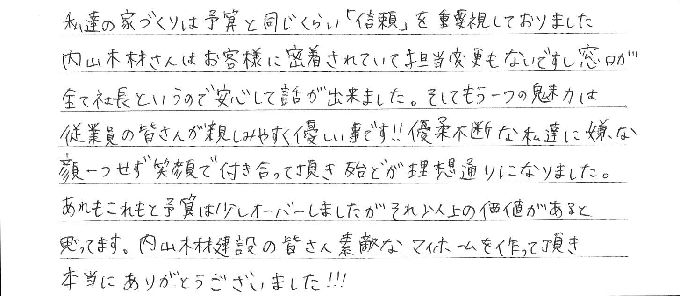 私達の家づくりは予算と同じくらい「信頼」を重要視しておりました
内山木材さんはお客様に密着されていて担当変更もないですし窓口が
全て社長というので安心して話が出来ました。そしてもう一つの魅力は
従業員の皆さんが親しみやすく優しい事です!!優柔不断な私達に嫌な
顔一つせず笑顔で付き合って頂き殆どが理想通りになりました。
あれもこれもと予算は少しオーバーしましたがそれ以上の価値があると
思ってます。内山木材建設の皆さん素敵なマイホームを作って頂き
本当にありがとうございました!!!